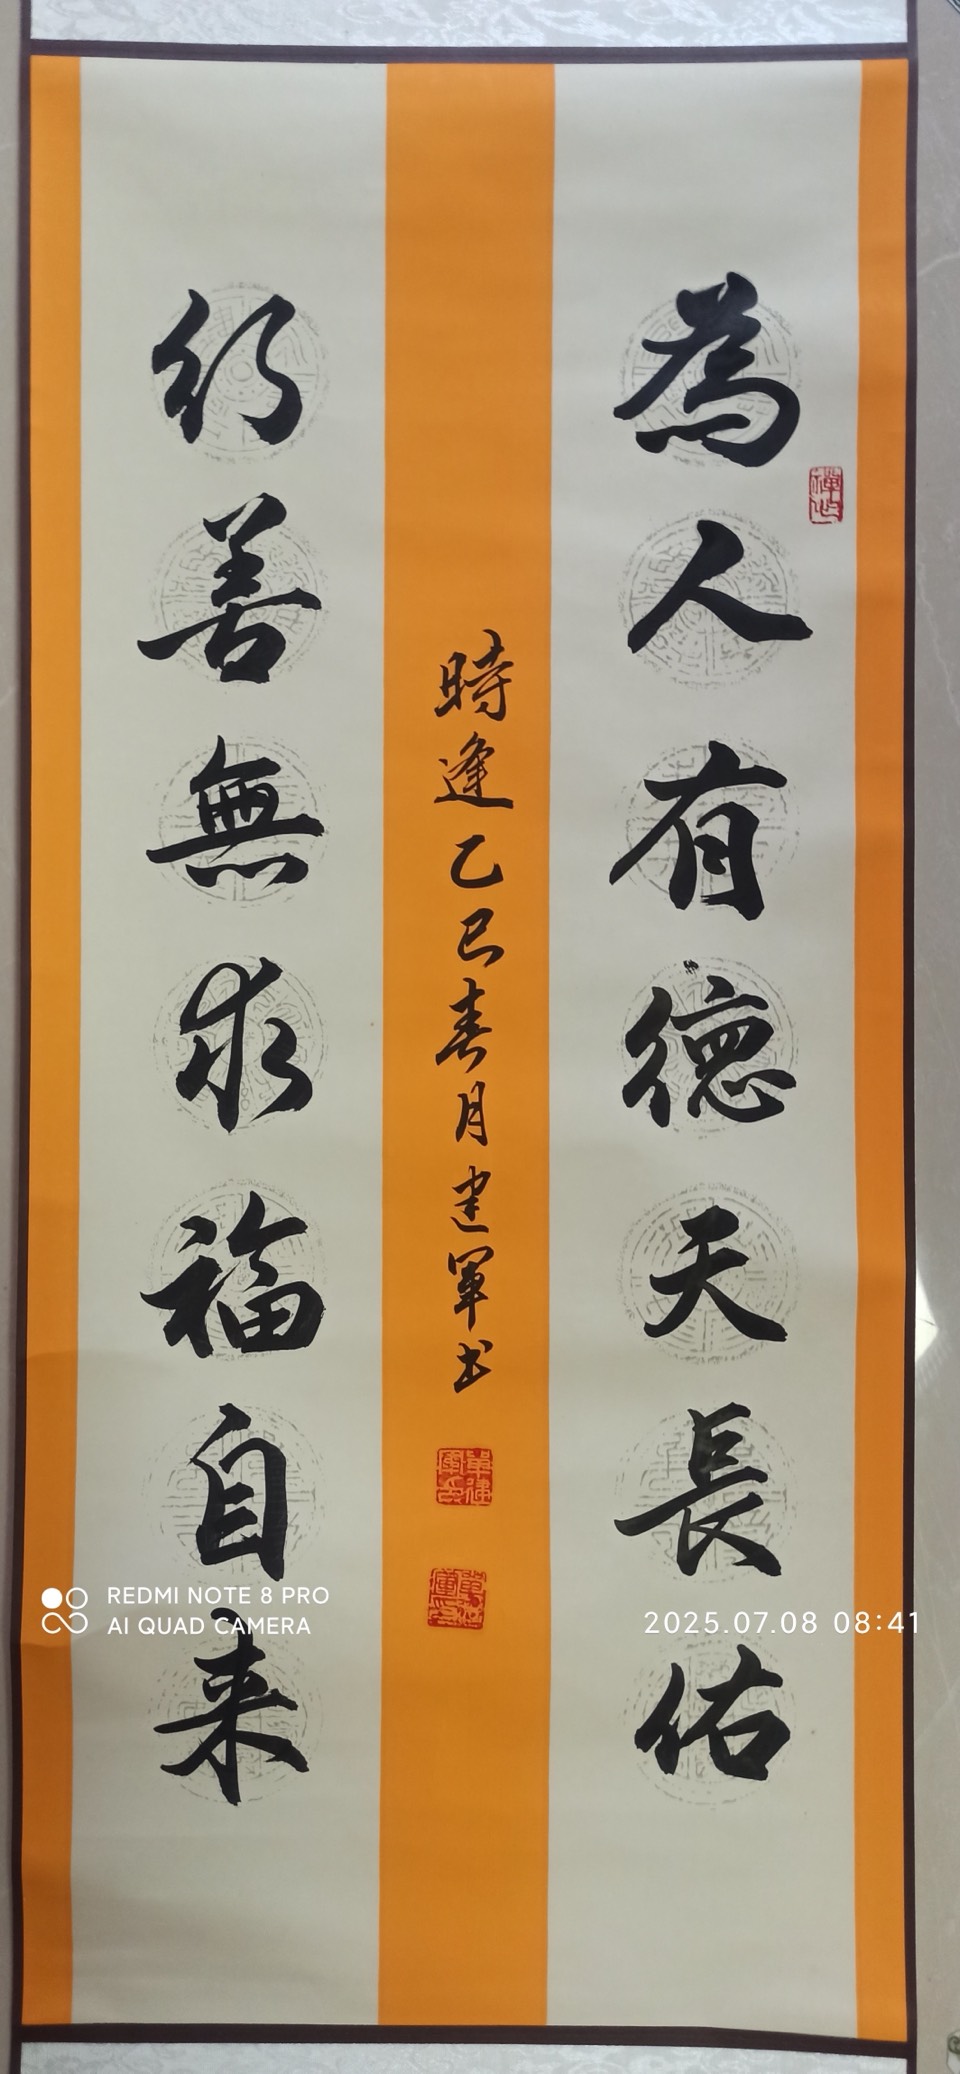 為人有德天長佑
禪心
時逢乙巳春月建軍书
行善無求福自来
REDMI NOTE 8 PRO
AI QUAD CAMERA
2025.07.08 08:41